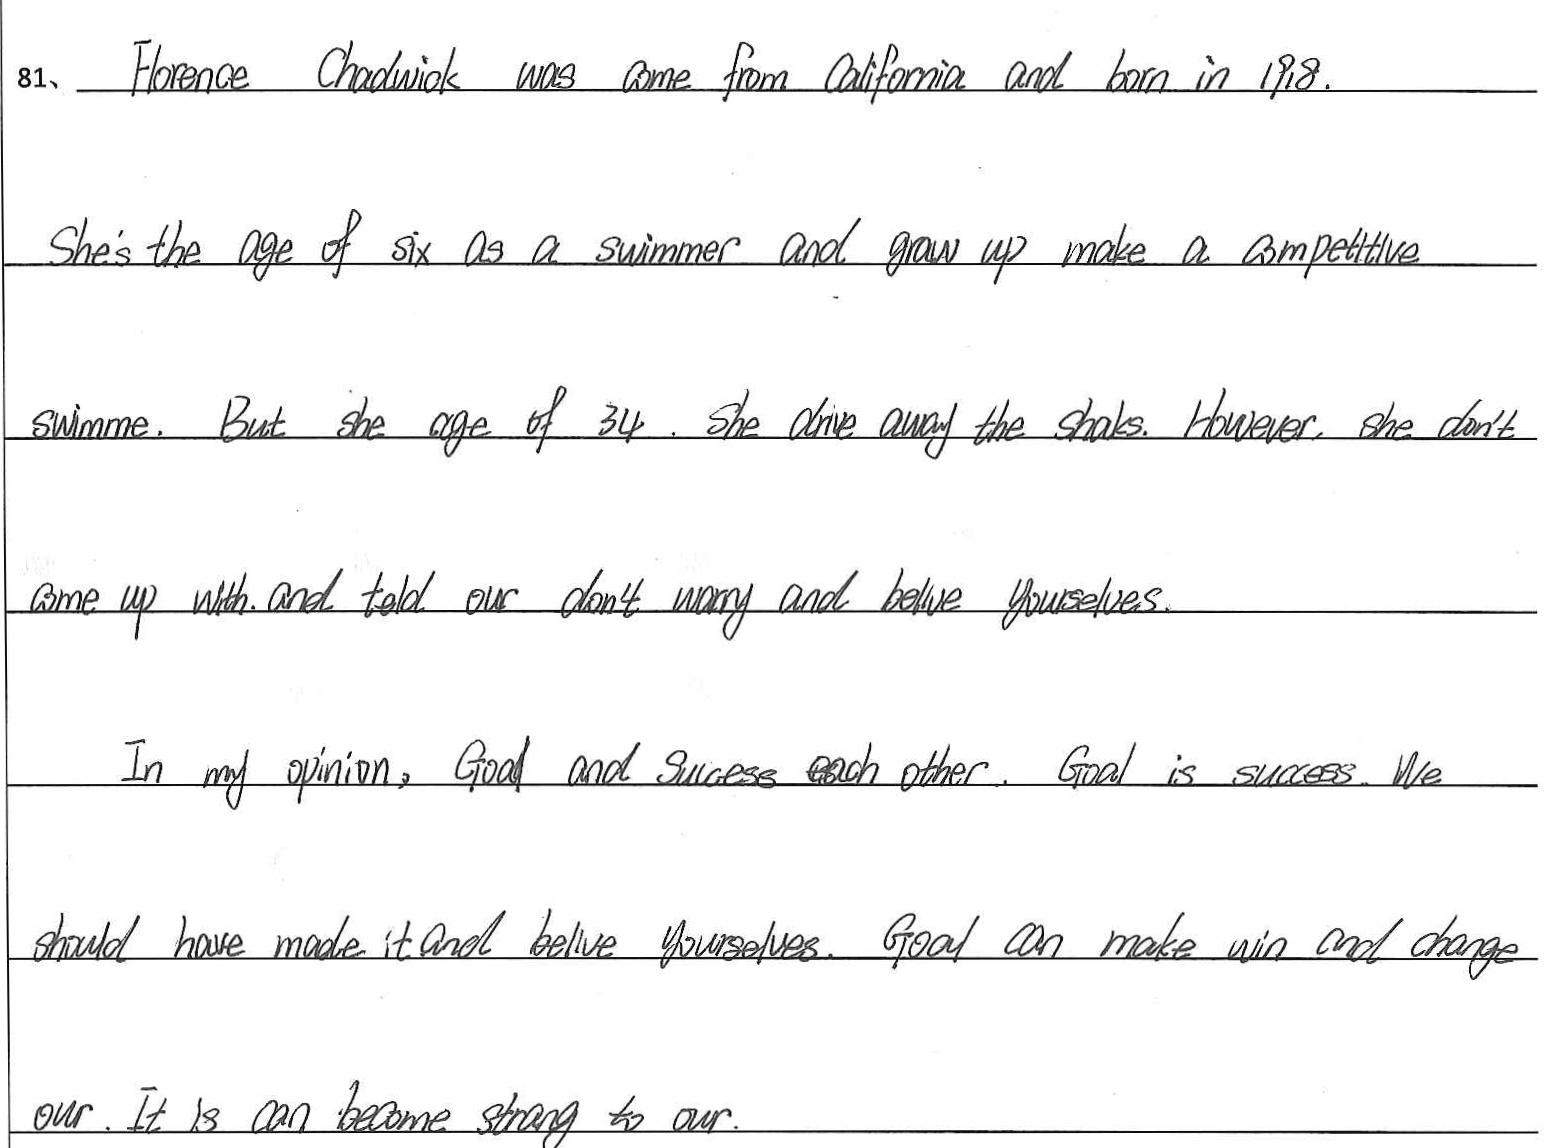 81、 Florence Chadwick was come from California and born in 1918.
She's the age of six as a swimmer and graw up make a competitive
swimme. But she age of 34. She drive away the shaks. However, she don't
come up with. and told our don't worry and belive yourselves.
In my opinion, Goal and Success each other. Goal is success. We
should have made it and belive yourselves. Goal can make win and change
our. It is can become strang to our.